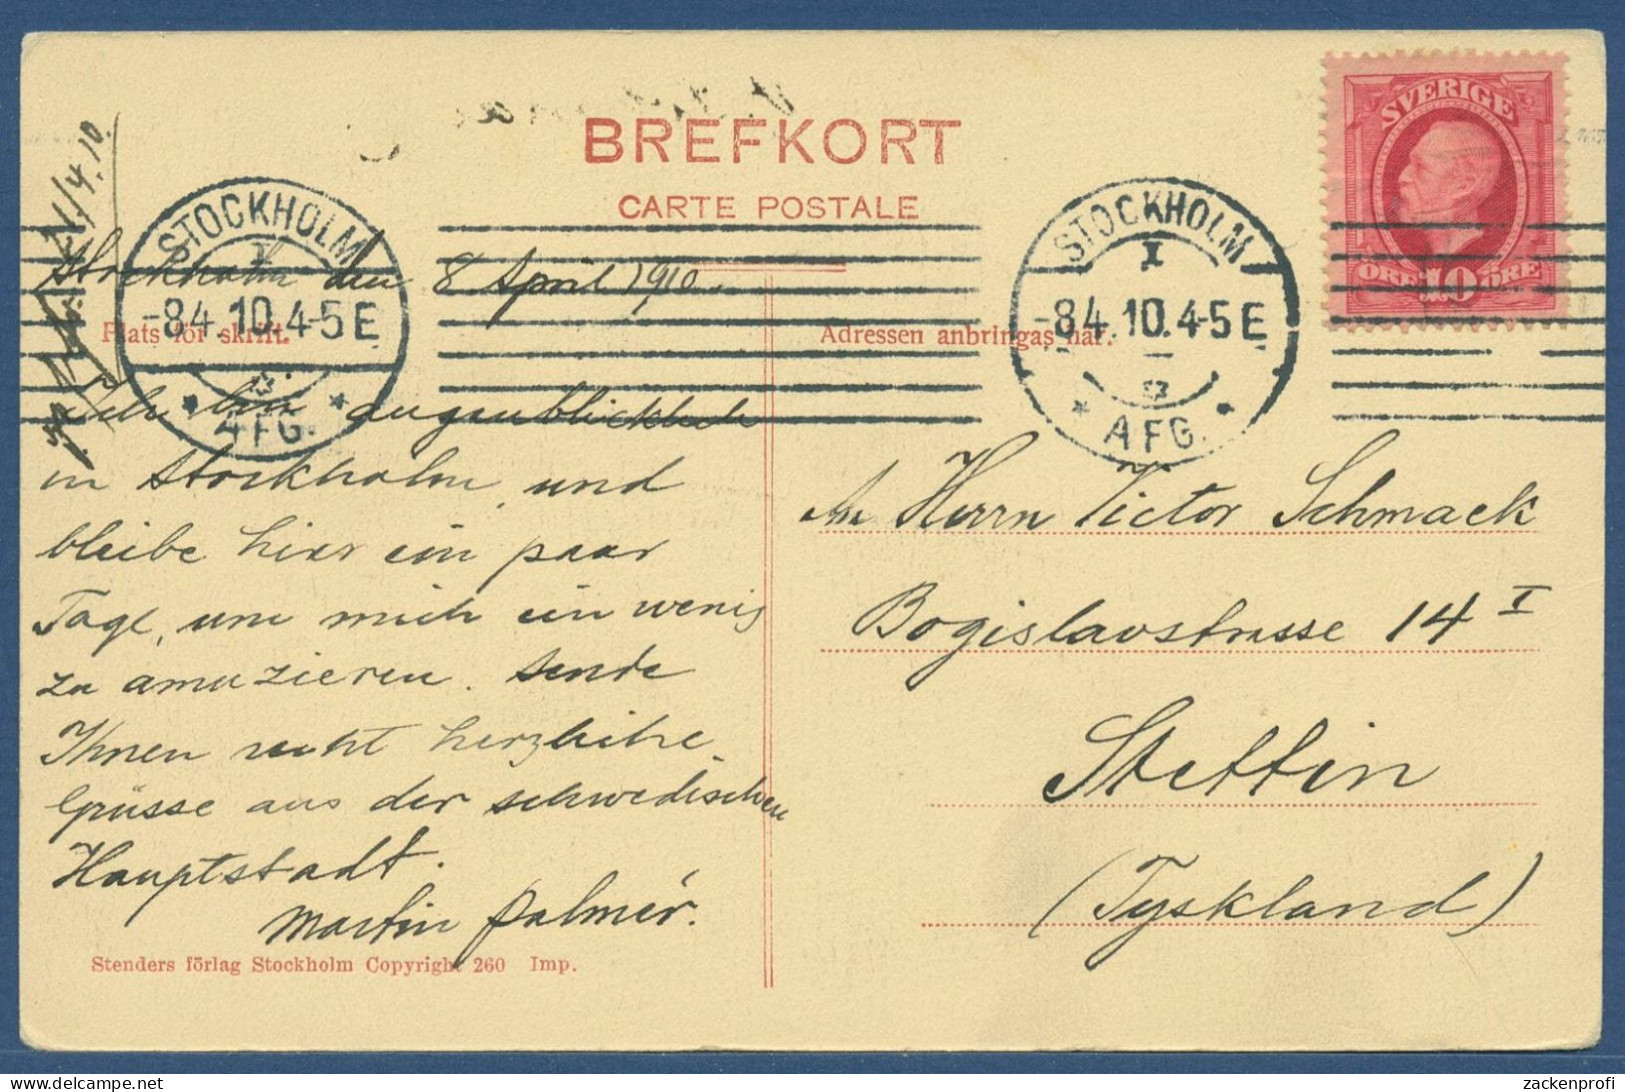 BREFKORT
CARTE POSTALE
SVERIGE
ÖRE 10 ÖRE
STOCKHOLM
I
-8.4.10.4-5E
AFG.
STOCKHOLM
I
-8.4.10.4-5E
AFG.
/4.10.
Stockholm den 8 April 1910.
Plats för skrift.
Adressen anbringas här.
Ich bin augenblicklich
in Stockholm, und
bleibe hier ein paar
Tage, um mich ein wenig
zu amuzieren. Sende
Ihnen recht herzliche
Grüsse aus der schwedischen
Hauptstadt.
Martin Palmér.
An Herrn Victor Schmack
Bogislavstrasse 14 I
Stettin
(Tyskland)
Stenders förlag Stockholm Copyright 260 Imp.
zackenprofi